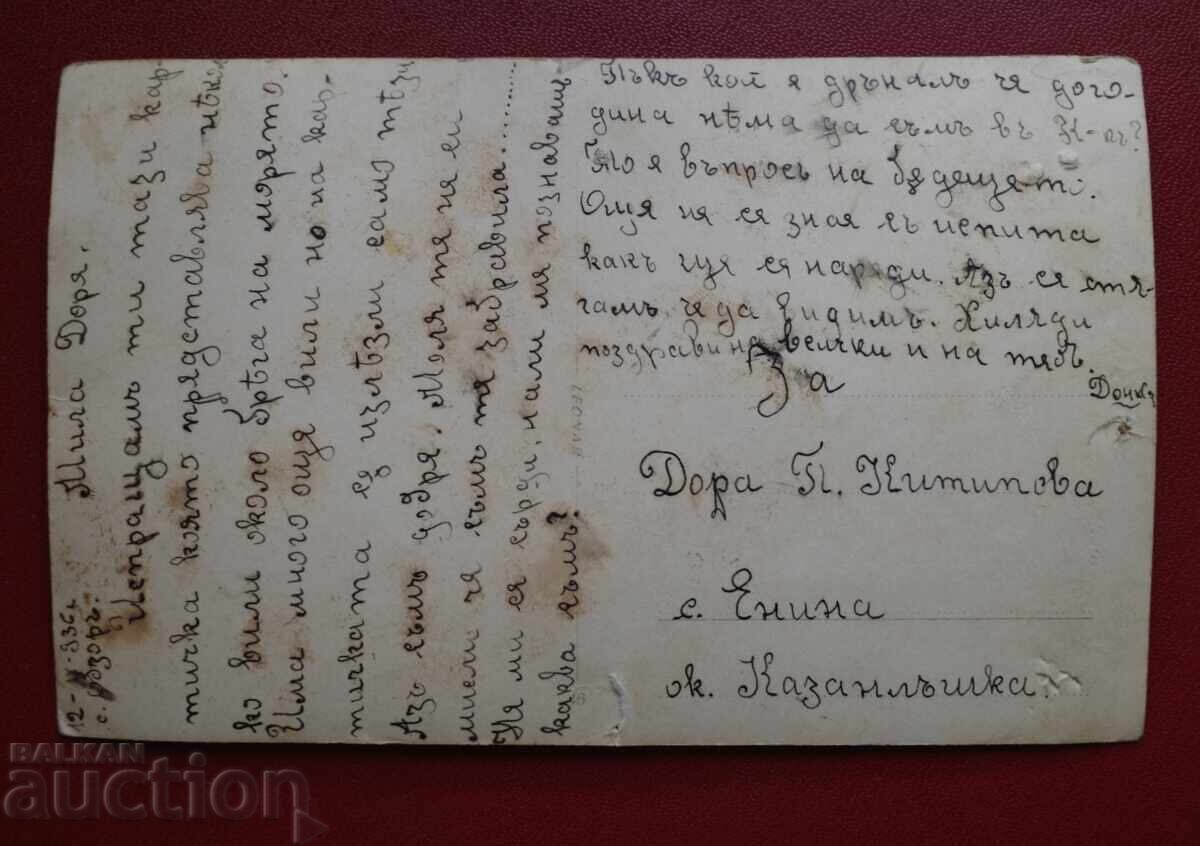 12- -936 г.
с. Обзоръ.
Мила Доря.
Испращамъ ти тази кар-
тичка която прядставлява нѣкол
ко вили около брѣга на морято.
Има много още вили но на кар-
тичката сѫ излѣзли само тѣзи
Азъ съмъ добря. Моля тя ня си
мисли чя съмъ тя забравила..........
Ня ми ся сърди, нали мя познавашъ
каква съмъ?
Пъкъ кой я дръналъ чя дого-
дина нѣма да съмъ въ К-къ?
То я въпросъ на бѫдещято.
Ощя ня ся зная съ испита
какъ щя ся наряди. Азъ ся стя-
гамъ чя да видимъ. Хиляди
поздрави на всички и на тябъ.
Донка
За
Дора П. Китипова
с. Енина
ок. Казанлъшка.
BALKAN
auction